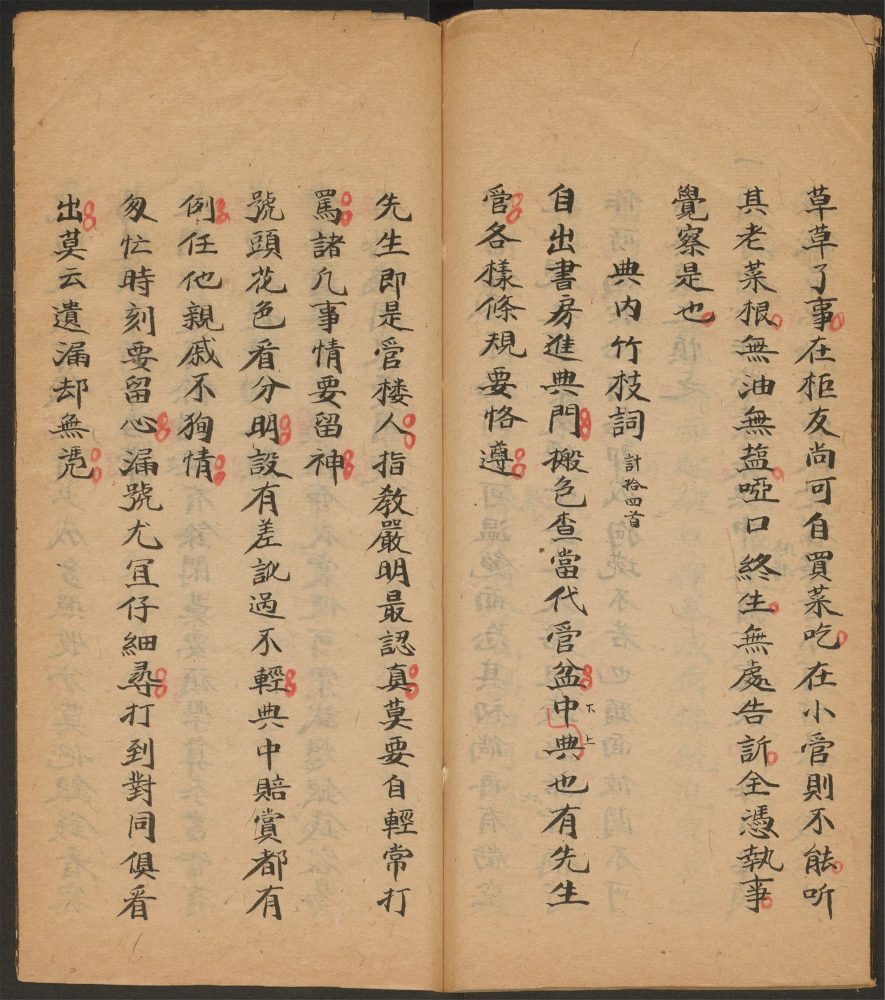 草草了事在柜友尚可自買菜吃在小管則不能听
其老菜根無油無盐啞口終生無處告訴全憑執事
覺察是也
典内竹枝詞計拾四首
自出書房進典門搬色查當代管盆中典也有先生
下上
管各樣條規要恪遵
先生即是管楼人指教嚴明最認真莫要自輕常打
罵諸凡事情要留神
號頭花色看分明設有差訛過不輕典中賠賞都有
例任他親戚不狥情
匆忙時刻要留心漏號尤宜仔細尋打到對同俱看
出莫云遺漏却無凴